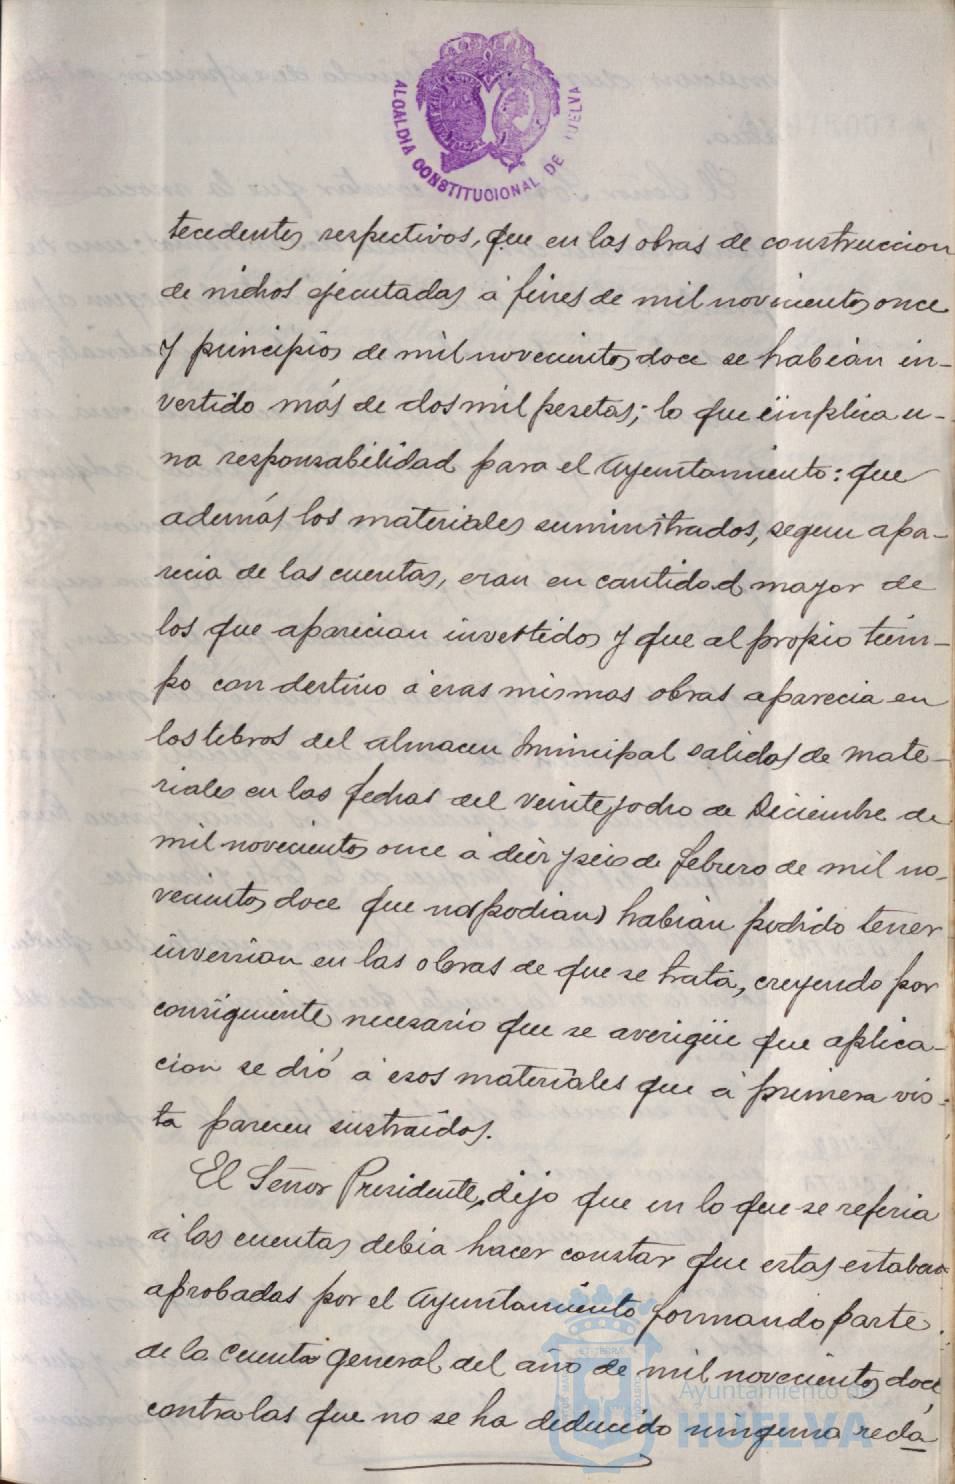 ALCALDIA CONSTITUCIONAL DE HUELVA
tecedentes respectivos, que en las obras de construccion
de nichos ejecutadas á fines de mil novecientos once
y principios de mil novecientos doce se habian in-
vertido más de dos mil pesetas; lo que implica u-
na responsabilidad para el Ayuntamiento: que
además los materiales suministrados, segun apa-
recia de las cuentas, eran en cantidad mayor de
los que aparecian invertidos y que al propio tiem-
po con destino á esas mismas obras aparecia en
los libros del almacen Municipal salidas de mate-
riales en las fechas del veinte y ocho de Diciembre de
mil novecientos once á diez y seis de febrero de mil no-
vecientos doce que no (podian) habian podido tener
inversion en las obras de que se trata, creyendo por
consiguiente necesario que se averigüe que aplica-
cion se dió á esos materiales que á primera vis-
ta parecen sustraidos.
El Señor Presidente, dijo que en lo que se referia
á las cuentas debia hacer constar que estas estaban
aprobadas por el Ayuntamiento formando parte
de la cuenta general del año de mil novecientos doce,
contra las que no se ha deducido ninguna recla
Ayuntamiento de
HUELVA